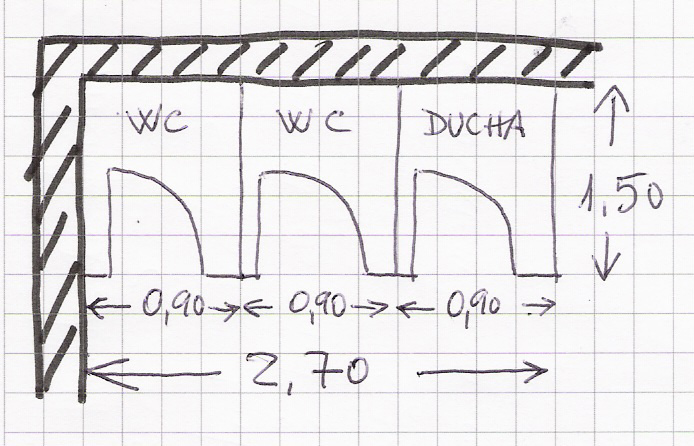 WC WC DUCHA
1,50
0,90 0,90 0,90
2,70